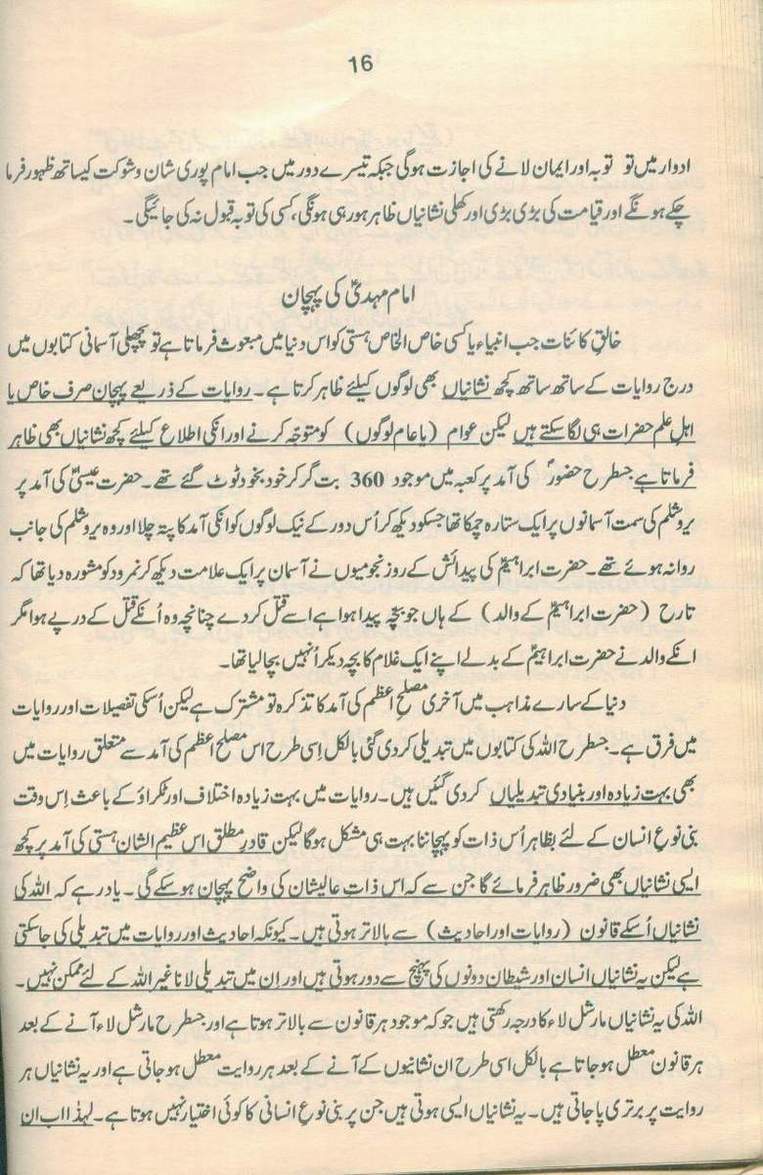 16
ادوار میں تو توبہ اور ایمان لانے کی اجازت ہوگی جبکہ تیسرے دور میں جب امام پوری شان و شوکت کیساتھ ظہور فرما
چکے ہونگے اور قیامت کی بڑی بڑی اور کھلی نشانیاں ظاہر ہو رہی ہونگی، کسی کی توبہ قبول نہ کی جائیگی۔
امام مہدیؑ کی پہچان
خالقِ کائنات جب انبیاء یا کسی خاص الخاص ہستی کو اس دنیا میں مبعوث فرماتا ہے تو پچھلی آسمانی کتابوں میں
درج روایات کے ساتھ ساتھ کچھ نشانیاں بھی لوگوں کیلئے ظاہر کرتا ہے۔ روایات کے ذریعے پہچان صرف خاص یا
اہلِ علم حضرات ہی لگا سکتے ہیں لیکن عوام (یا عام لوگوں) کو متوجّہ کرنے اور انکی اطلاع کیلئے کچھ نشانیاں بھی ظاہر
فرماتا ہے جسطرح حضورؐ کی آمد پر کعبہ میں موجود 360 بت گر کر خود بخود ٹوٹ گئے تھے۔ حضرت عیسیٰؑ کی آمد پر
یروشلم کی سمت آسمانوں پر ایک ستارہ چمکا تھا جسکو دیکھ کر اُس دور کے نیک لوگوں کو انکی آمد کا پتہ چلا اور وہ یروشلم کی جانب
روانہ ہوئے تھے۔ حضرت ابراہیمؑ کی پیدائش کے روز نجومیوں نے آسمان پر ایک علامت دیکھ کر نمرود کو مشورہ دیا تھا کہ
تارح (حضرت ابراہیمؑ کے والد) کے ہاں جو بچّہ پیدا ہوا ہے اسے قتل کر دے چنانچہ وہ اُنکے قتل کے درپے ہوا مگر
انکے والد نے حضرت ابراہیمؑ کے بدلے اپنے ایک غلام کا بچہ دیکر اُنہیں بچالیا تھا۔
دنیا کے سارے مذاہب میں آخری مصلحِ اعظم کی آمد کا تذکرہ تو مشترک ہے لیکن اُسکی تفصیلات اور روایات
میں فرق ہے۔ جسطرح اللہ کی کتابوں میں تبدیلی کردی گئی بالکل اِسی طرح اس مصلح اعظم کی آمد سے متعلق روایات میں
بھی بہت زیادہ اور بنیادی تبدیلیاں کردی گئیں ہیں۔ روایات میں بہت زیادہ اختلاف اور ٹکراؤ کے باعث اِس وقت
بنی نوعِ انسان کے لئے بظاہر اُس ذات کو پہچاننا بہت ہی مشکل ہوگا لیکن قادرِ مطلق اس عظیم الشان ہستی کی آمد پر کچھ
ایسی نشانیاں بھی ضرور ظاہر فرمائے گا جن سے کہ اس ذاتِ عالیشان کی واضح پہچان ہوسکے گی۔ یاد رہے کہ اللہ کی
نشانیاں اُسکے قانون (روایات اور احادیث) سے بالاتر ہوتی ہیں۔ کیونکہ احادیث اور روایات میں تبدیلی کی جاسکتی
ہے لیکن یہ نشانیاں انسان اور شیطان دونوں کی پہنچ سے دور ہوتی ہیں اور اِن میں تبدیلی لانا غیر اللہ کے لئے ممکن نہیں۔
اللہ کی یہ نشانیاں مارشل لاء کا درجہ رکھتی ہیں جو کہ موجود ہر قانون سے بالاتر ہوتا ہے اور جسطرح مارشل لاء آنے کے بعد
ہر قانون معطل ہو جاتا ہے بالکل اسی طرح ان نشانیوں کے آنے کے بعد ہر روایت معطل ہو جاتی ہے اور یہ نشانیاں ہر
روایت پر برتری پا جاتی ہیں۔ یہ نشانیاں ایسی ہوتی ہیں جن پر بنی نوعِ انسانی کا کوئی اختیار نہیں ہوتا ہے۔ لہذا اب ان